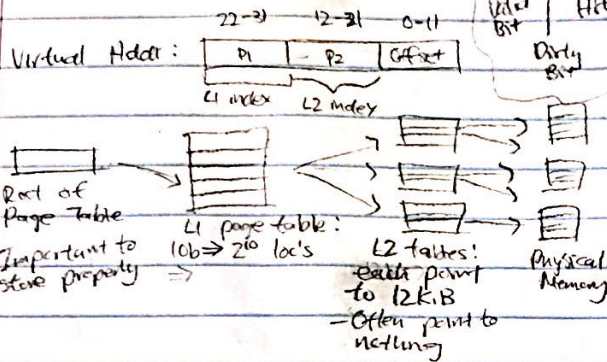 22-31 12-21 0-11
Valid
Bit
Dirty
Bit
Virtual Addr: P1 P2 Offset
L1 index L2 index
Root of
Page Table
Important to
store properly ⇒
L1 page table:
10b ⇒ 2^10 loc's
L2 tables:
each point
to 12KiB
- Often point to
nothing
Physical
Memory